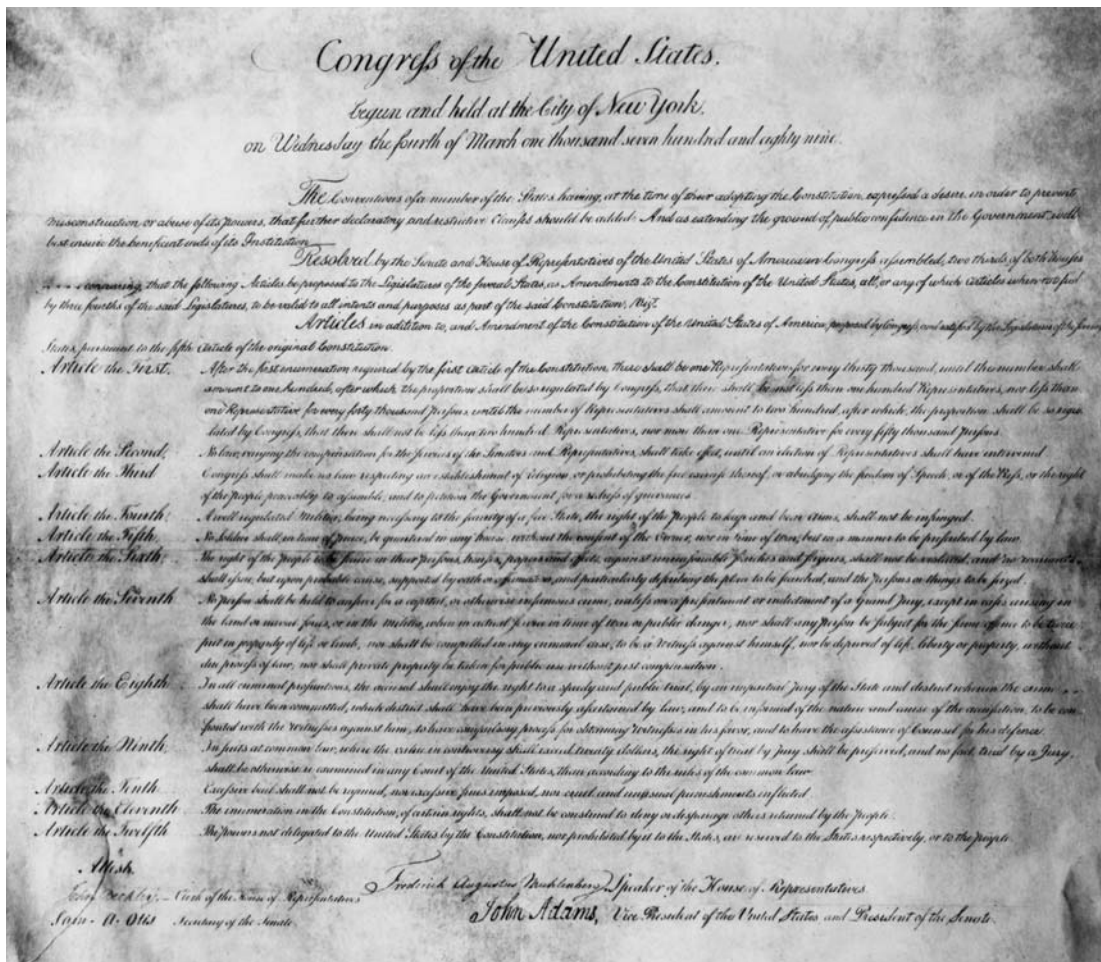 Congress of the United States,
begun and held at the City of New York,
on Wednesday the fourth of March one thousand seven hundred and eighty nine.
The Conventions of a number of the States having, at the time of their adopting the Constitution, expressed a desire, in order to prevent
misconstruction or abuse of its powers, that further declaratory and restrictive Clauses should be added: And as extending the ground of public confidence in the Government, will
best insure the beneficent ends of its Institution
Resolved by the Senate and House of Representatives of the United States of America in Congress assembled, two thirds of both Houses
concurring, that the following Articles be proposed to the Legislatures of the several States, as Amendments to the Constitution of the United States, all, or any of which Articles, when ratified
by three fourths of the said Legislatures, to be valid to all intents and purposes, as part of the said Constitution, Viz.
Articles in addition to, and Amendment of the Constitution of the United States of America, proposed by Congress, and ratified by the Legislatures of the several
States, pursuant to the fifth Article of the original Constitution.
Article the First. After the first enumeration required by the first Article of the Constitution, there shall be one Representative for every thirty thousand, until the number shall
amount to one hundred, after which, the proportion shall be so regulated by Congress, that there shall be not less than one hundred Representatives, nor less than
one Representative for every forty thousand Persons, until the number of Representatives shall amount to two hundred, after which, the proportion shall be so regu
lated by Congress, that there shall not be less than two hundred Representatives, nor more than one Representative for every fifty thousand Persons.
Article the Second. No law, varying the compensation for the services of the Senators and Representatives, shall take effect, until an election of Representatives shall have intervened
Article the Third Congress shall make no law respecting an establishment of Religion, or prohibiting the free exercise thereof, or abridging the freedom of Speech, or of the Press, or the right
of the People peaceably to assemble, and to petition the Government for a redress of grievances
Article the Fourth. A well regulated Militia, being necessary to the security of a free State, the right of the People to keep and bear Arms, shall not be infringed.
Article the Fifth. No Soldier shall, in time of peace, be quartered in any house, without the consent of the Owner, nor in time of war, but in a manner to be prescribed by law.
Article the Sixth. The right of the People to be secure in their Persons, houses, papers and effects, against unreasonable searches and seizures, shall not be violated, and no warrants
shall issue, but upon probable cause, supported by oath or affirmation, and particularly describing the place to be searched, and the Persons or things to be seized.
Article the Seventh No Person shall be held to answer for a capital, or otherwise infamous crime, unless on a presentment or indictment of a Grand Jury, except in cases arising in
the land or naval forces, or in the Militia, when in actual service in time of War or public danger, nor shall any Person be subject for the same offence to be twice
put in jeopardy of life or limb, nor shall be compelled in any criminal case, to be a Witness against himself, nor be deprived of life, liberty or property, without
due process of law; nor shall private property be taken for public use without just compensation.
Article the Eighth. In all criminal prosecutions, the accused shall enjoy the right to a speedy and public trial, by an impartial Jury of the State and district wherein the crime
shall have been committed, which district shall have been previously ascertained by law, and to be informed of the nature and cause of the accusation, to be con
fronted with the Witnesses against him, to have compulsory process for obtaining Witnesses in his favor, and to have the assistance of Counsel for his defence.
Article the Ninth. In suits at common law, where the value in controversy shall exceed twenty dollars, the right of trial by Jury shall be preserved, and no fact, tried by a Jury,
shall be otherwise re examined in any Court of the United States, than according to the rules of the common law
Article the Tenth. Excessive bail shall not be required, nor excessive fines imposed, nor cruel and unusual punishments inflicted.
Article the Eleventh The enumeration in the Constitution, of certain rights, shall not be construed to deny or disparage others retained by the People.
Article the Twelfth The Powers not delegated to the United States by the Constitution, nor prohibited by it to the States, are reserved to the States respectively, or to the People.
Attest.
John Beckley, Clerk of the House of Representatives
Sam. A. Otis Secretary of the Senate
Frederick Augustus Muhlenberg, Speaker of the House of Representatives.
John Adams, Vice President of the United States, and President of the Senate.